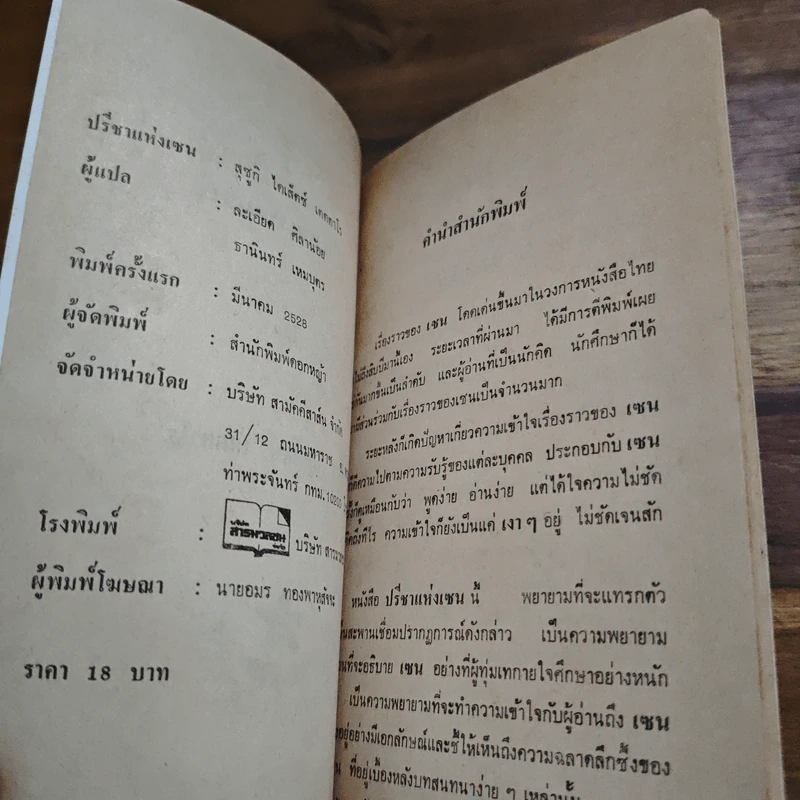 ปรีชาแห่งเซน : สุซูกิ ไดเส็ตซ์ เตตตาโร
ผู้แปล : ละเอียด ศิลาน้อย
ธานินทร์ เหมบุตร
พิมพ์ครั้งแรก : มีนาคม 2528
ผู้จัดพิมพ์ : สำนักพิมพ์ดอกหญ้า
จัดจำหน่ายโดย : บริษัท สามัคคีสาส์น จำกัด
31/12 ถนนมหาราช
ท่าพระจันทร์ กทม.10200
โรงพิมพ์ : บริษัท สารมวลชน จำกัด บริษัท
ผู้พิมพ์โฆษณา : นายอมร ทองพาหุสัจจะ
ราคา 18 บาท
คำนำสำนักพิมพ์
เรื่องราวของ เซน โดดเด่นขึ้นมาในวงการหนังสือไทย
ระยะเวลาที่ผ่านมา ได้มีการตีพิมพ์เผย
กันมากขึ้นเป็นลำดับ และผู้อ่านที่เป็นนักคิด นักศึกษาก็ได้
มีส่วนร่วมกับเรื่องราวของเซนเป็นจำนวนมาก
ระยะหลังก็เกิดปัญหาเกี่ยวความเข้าใจเรื่องราวของ เซน
ตีความไปตามความรับรู้ของแต่ละบุคคล ประกอบกับ เซน
ดูเหมือนกับว่า พูดง่าย อ่านง่าย แต่ได้ใจความไม่ชัด
ทีไร ความเข้าใจก็ยังเป็นแค่ เงา ๆ อยู่ ไม่ชัดเจนสัก
หนังสือ ปรีชาแห่งเซน นี้ พยายามที่จะแทรกตัว
สะพานเชื่อมปรากฏการณ์ดังกล่าว เป็นความพยายาม
ที่จะอธิบาย เซน อย่างที่ผู้ทุ่มเทกายใจศึกษาอย่างหนัก
เป็นความพยายามที่จะทำความเข้าใจกับผู้อ่านถึง เซน
อยู่อย่างมีเอกลักษณ์และชี้ให้เห็นถึงความฉลาดลึกซึ้งของ
ที่อยู่เบื้องหลังบทสนทนาง่าย ๆ เหล่านั้น